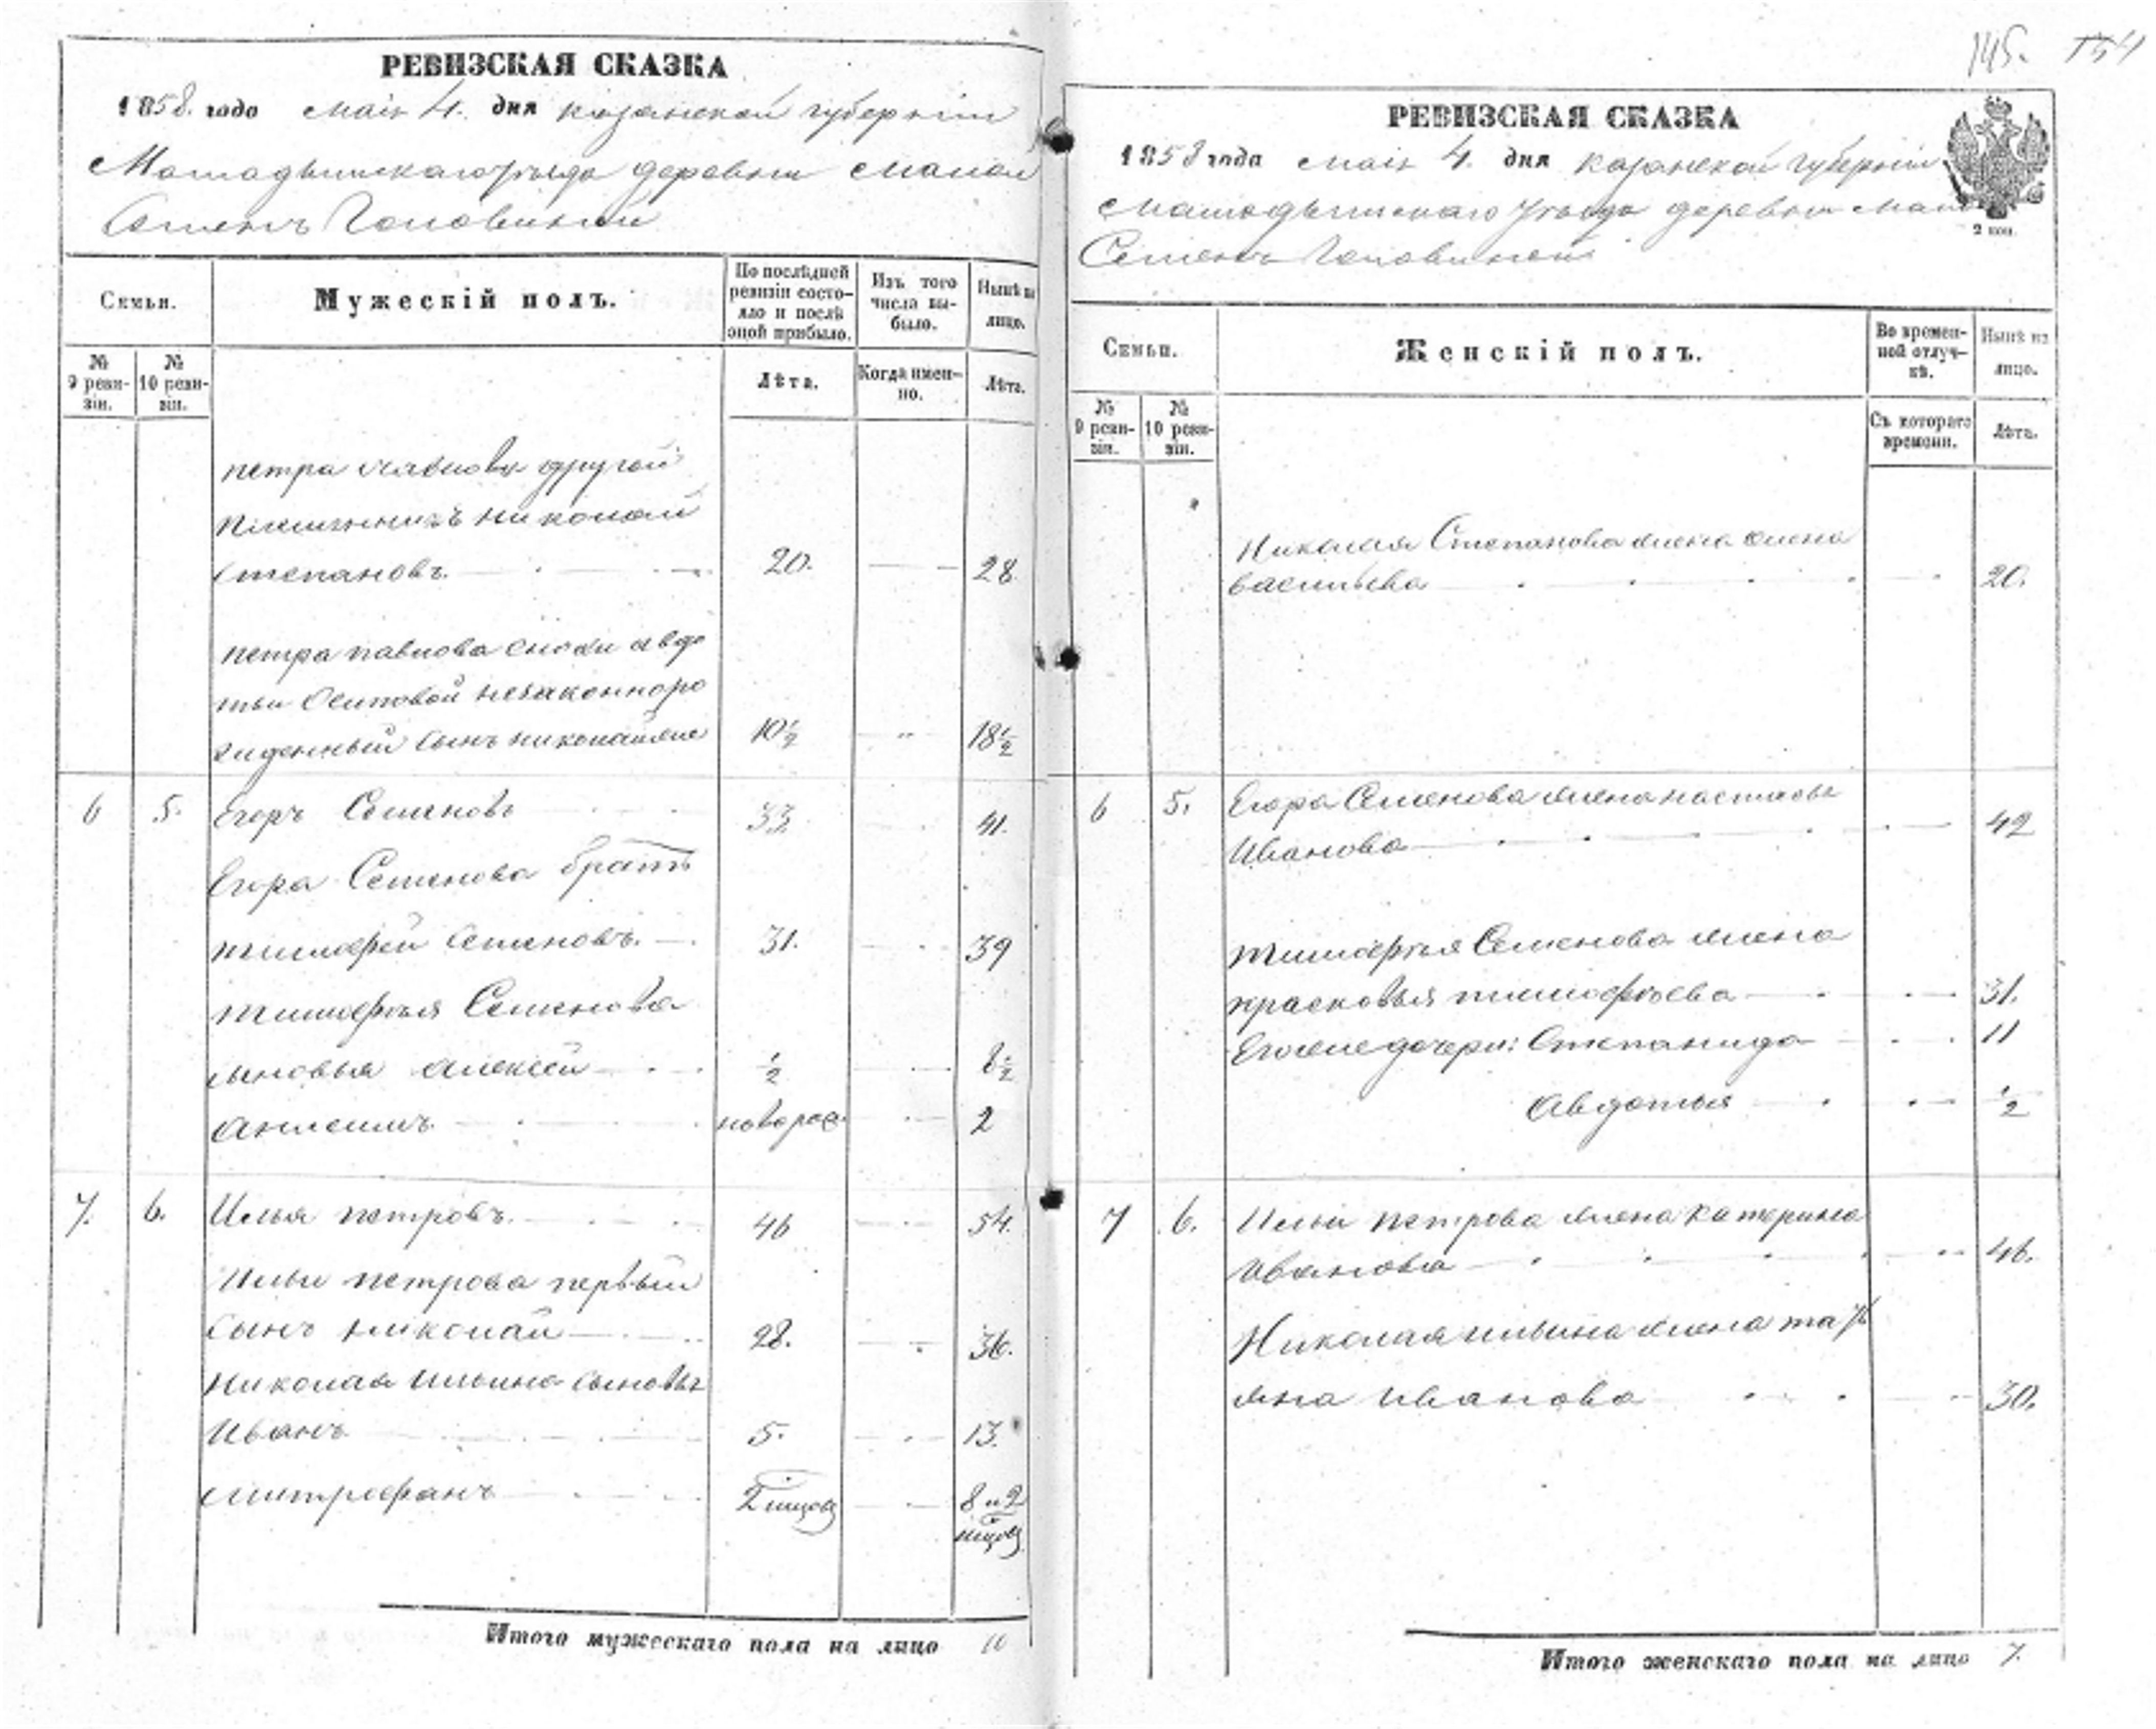 145. 154
РЕВИЗСКАЯ СКАЗКА
1858. года маія 4. дня казанской губерніи
Мамадышскаго уѣзда деревни малой
Головиной
Семьи.
Мужескій полъ.
По послѣдней ревизіи состояло и послѣ оной прибыло.
Изъ того числа выбыло.
Нынѣ на лицо.
№ 9 ревизіи.
№ 10 ревизіи.
Лѣта.
Когда именно.
Лѣта.
петра павлова другой
племянникъ николай
степановъ. 20. 28.
петра павлова снохи авдо
тьи осиповой незаконноро
жденный сынъ николай 10½ „ 18½
6 5. Егоръ Семеновъ 33. 41.
Егора Семенова братъ
тимофей семеновъ. 31. 39
тимофѣя Семенова
сыновья алексей ½ 8½
новорож. 2
7. 6. Илья петровъ. 46 54.
Ильи петрова первый
сынъ николай 28. 36.
николая ильина сыновья
Иванъ 5. 13.
митрофанъ 2 мѣсяц 8 и 2
мѣсяц
Итого мужескаго пола на лицо 10
РЕВИЗСКАЯ СКАЗКА
1858 года маія 4. дня казанской губерніи
мамадышскаго уѣзда деревни мало
Головиной
2 коп.
Семьи.
Женскій полъ.
Во временной отлучкѣ.
Нынѣ на лицо.
№ 9 ревизіи.
№ 10 ревизіи.
Съ котораго времени.
Лѣта.
Николая Степанова жена елена
васильева 20.
6 5. Егора Семенова жена настасья
Иванова 42
тимофѣя Семенова жена
прасковья тимофѣева 31.
Его же дочери: Степанида 11
Авдотья ½
7 6. Ильи петрова жена катерина
Иванова 46.
Николая ильина жена тать
яна Иванова 30.
Итого женскаго пола на лицо 7.